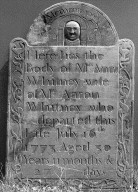 Here lies the
Body of Mrs Ann
Whitney wife
of Mr Aaron
Whitney who
departed this
Life July 16th
1775 Aged 30
Years 11 months &
days